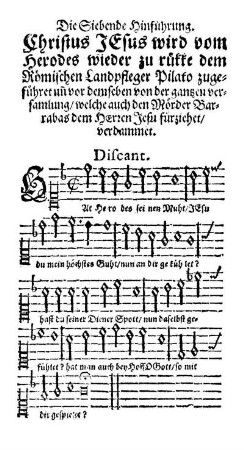 Die Siebende Hinführung.
Christus JEsus wird vom
Herodes wieder zu rükke dem
Römischen Landpfleger Pilato zuge-
führet uñ vor demselben von der gantzen ver-
samlung/welche auch den Mörder Bar-
rabas dem HErren Jesu fürziehet/
verdammet.
Discant.
At Hero des sei nen Muht/JEsu
du mein höchstes Guht/nun an dir ge küh let?
hast du seiner Diener Spott/nun daselbst ge-
fühlet? hat man auch bey Hoff/O Gott/so mit
dir gespielet?